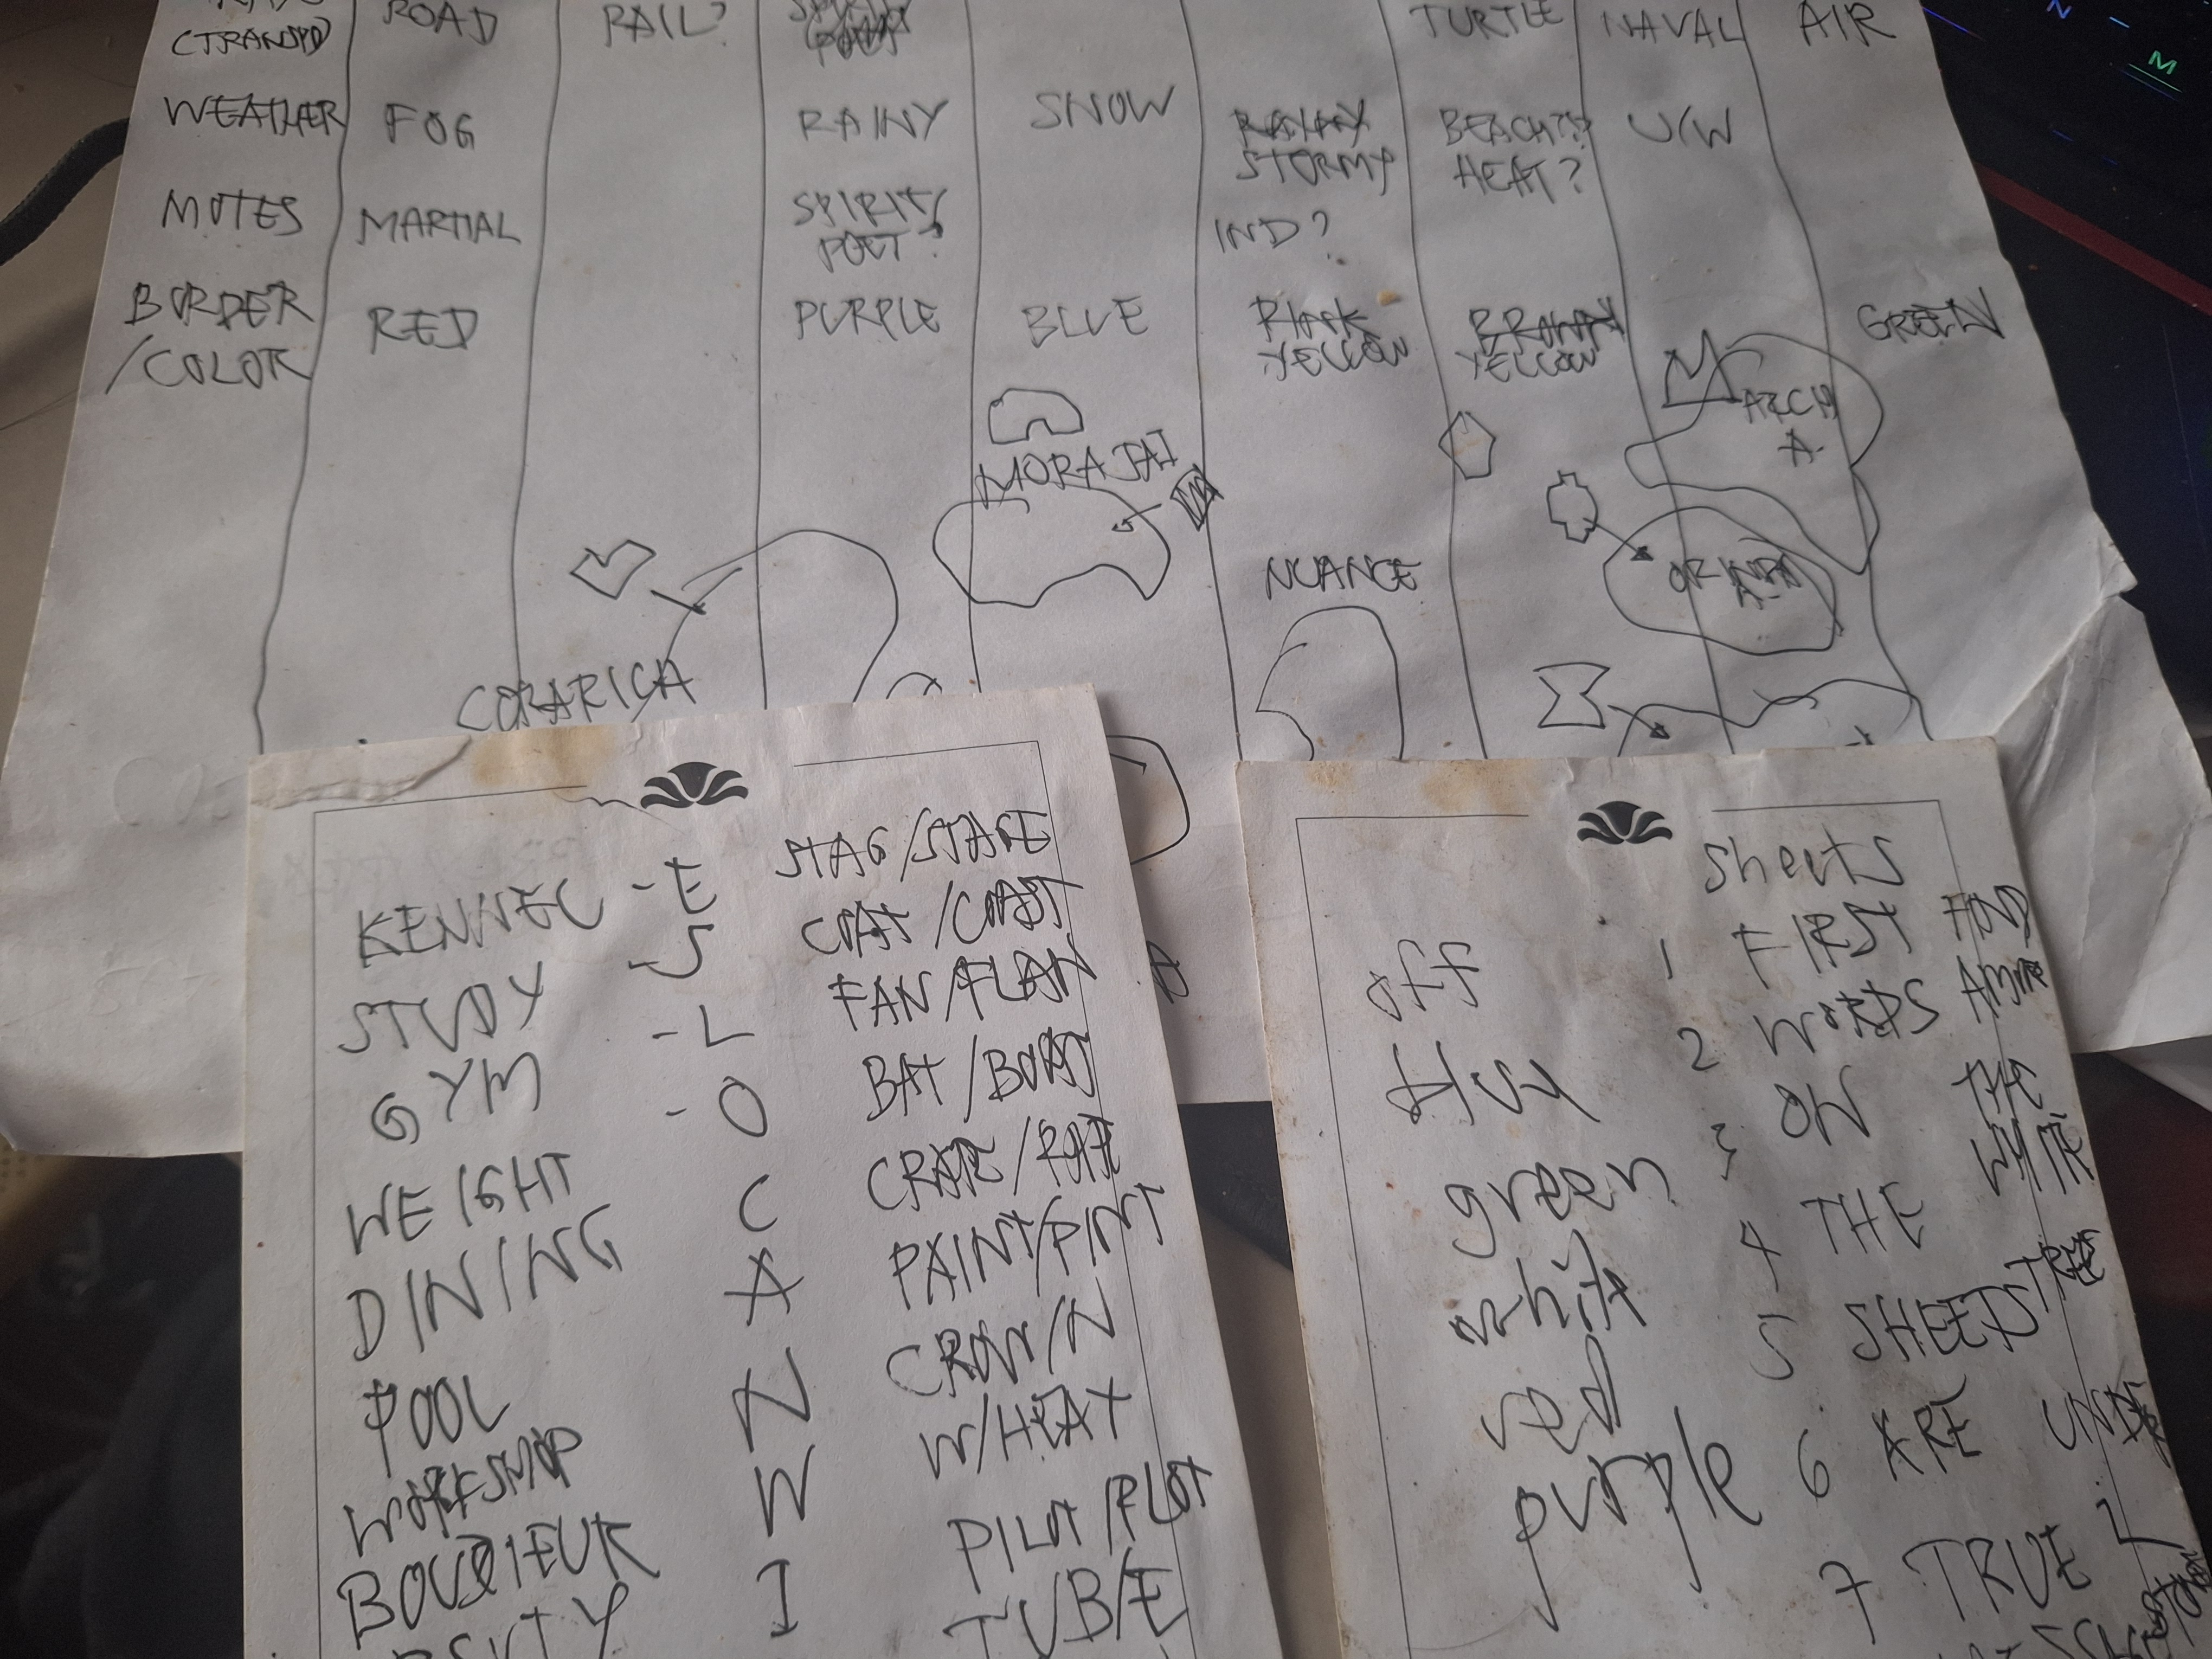 (TRANSPO) ROAD RAIL? TURTLE NAVAL AIR
WEATHER FOG RAINY SNOW STORMY BEACH?? HEAT? U/W
MOTES MARTIAL SPIRIT/ POET? IND?
BORDER /COLOR RED PURPLE BLUE YELLOW YELLOW GREEN
MORA JAI
ARCH A.
NUANCE
ORINDA A.
CORARICA
KENNEL - E STAG /STAGE
STUDY - S COAT /COAST
GYM - L FAN /FLAN
WEIGHT - O BAT /BOAT
DINING C CRATE /RATE
POOL A PAINT/PINT
WORKSHOP N CROW/N
BOUDIEUR W W/HEAT
I PILOT /PLOT
TUB/E
sheets
off 1 FIRST FIND
blux 2 WORDS
green 3 ON THE
white 4 THE WHITE
red 5 SHEEDS TREE
purple 6 ARE
7 TRUE
M